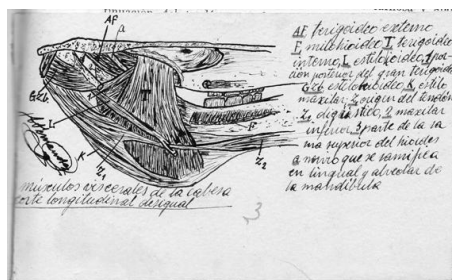 AF
a
G2b
L
K
Z1
T
F
Z2
músculos viscerales de la cabesa
corte longitudinal desigual
3
AF terigoideo externo
F milohioideo T terigoideo
interno, L estilohioideo, 1 por-
ción posterior del gran terigoideo
G2b estilohioideo, K estilo
maxilar, Z1 origen del tendón
Z2 digastrico, 2 maxilar
inferior, 3 parte de la ra
ma superior del hioides
a nervio que se ramifica
en lingual y alveolar de
la mandíbula